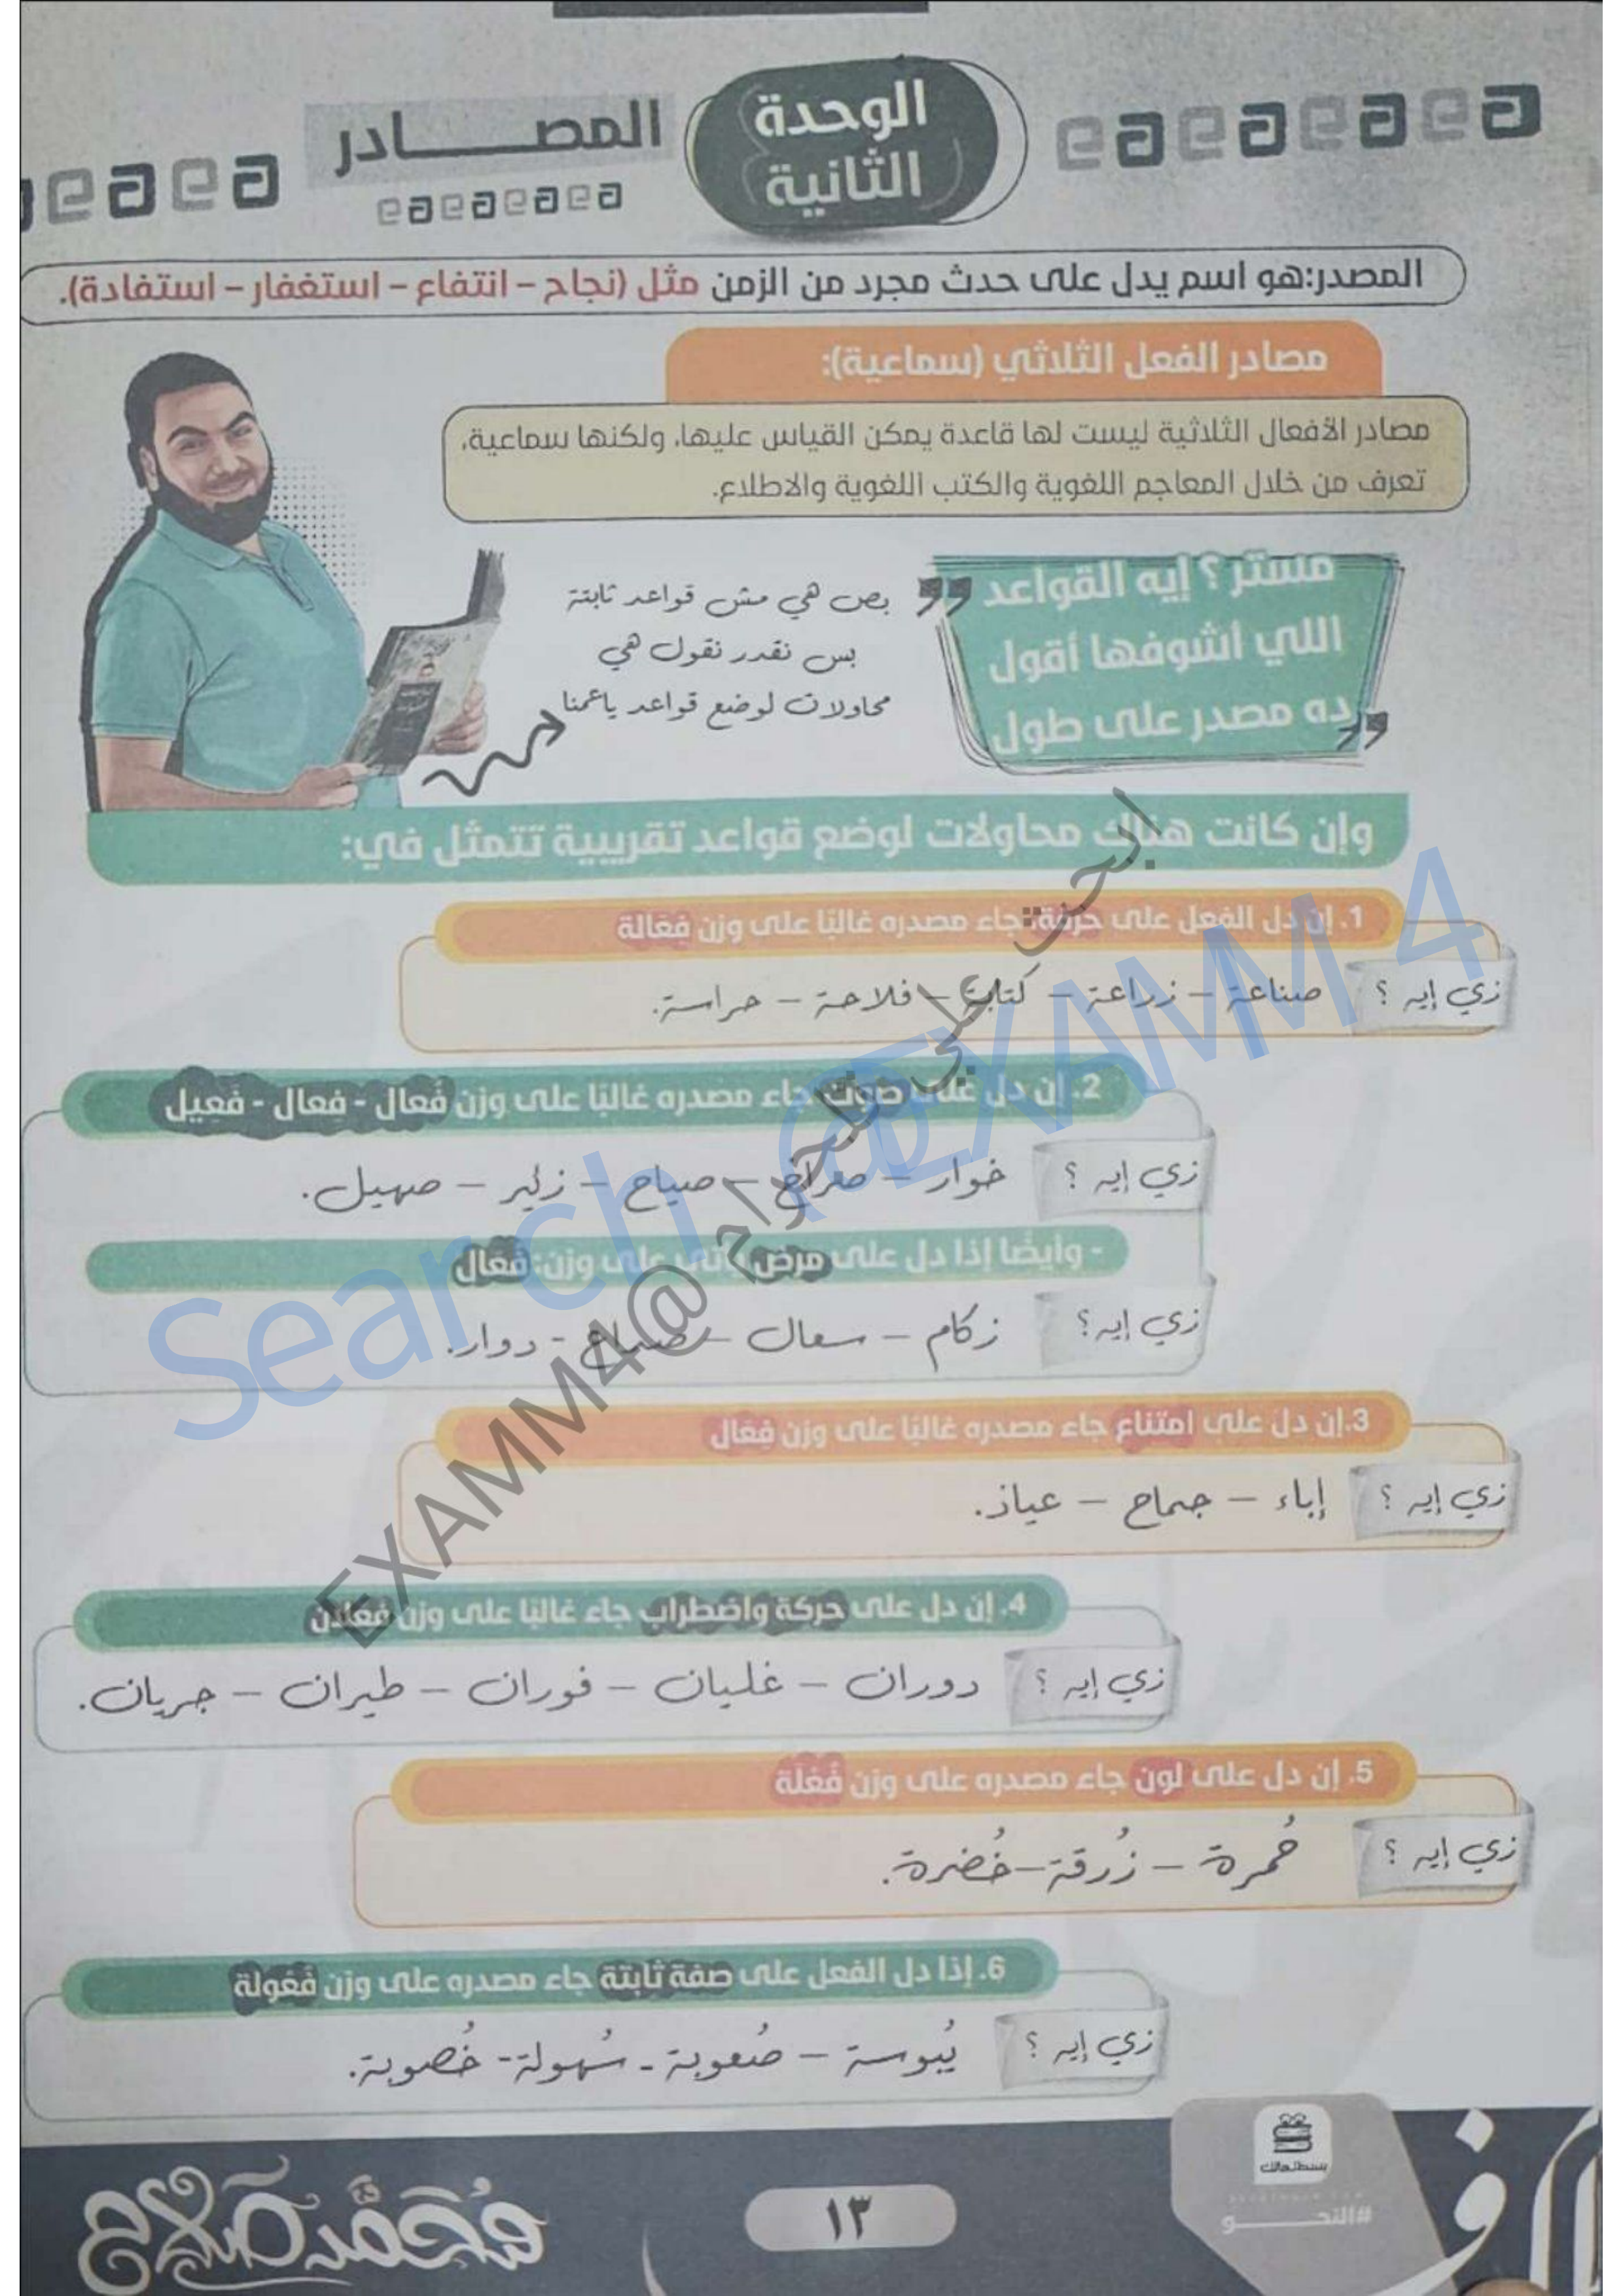 الوحدة
الثانية
المصـــــادر
المصدر:هو اسم يدل على حدث مجرد من الزمن مثل (نجاح – انتفاع – استغفار – استفادة).
مصادر الفعل الثلاثي (سماعية):
مصادر الأفعال الثلاثية ليست لها قاعدة يمكن القياس عليها، ولكنها سماعية،
تعرف من خلال المعاجم اللغوية والكتب اللغوية والاطلاع.
مستر ؟ إيه القواعد
اللي أشوفها أقول
ده مصدر على طول
بص هي مش قواعد ثابتة
بس نقدر نقول هي
محاولات لوضع قواعد ياعمنا
وإن كانت هناك محاولات لوضع قواعد تقريبية تتمثل في:
1. إن دل الفعل على حرفة جاء مصدره غالبًا على وزن فِعَالة
زي إيه ؟ صناعة – زراعة – كتابة – فلاحة – حراسة.
2. إن دل على صوت جاء مصدره غالبًا على وزن فُعال - فِعال - فَعِيل
زي إيه ؟ خوار – صراخ – صياح – زئير – صهيل.
- وأيضًا إذا دل على مرض يأتي على وزن: فُعَال
زي إيه ؟ زكام – سعال – صداع - دوار.
3.إن دل على امتناع جاء مصدره غالبًا على وزن فِعَال
زي إيه ؟ إباء – جماح – عياذ.
4. إن دل على حركة واضطراب جاء غالبًا على وزن فَعَلان
زي إيه ؟ دوران – غليان – فوران – طيران – جريان.
5. إن دل على لون جاء مصدره على وزن فُعْلَة
زي إيه ؟ حُمرة – زُرقة –خُضرة.
6. إذا دل الفعل على صفة ثابتة جاء مصدره على وزن فُعُولة
زي إيه ؟ يُبوسة – صُعوبة - سُهولة- خُصوبة.
Search @EXAMM 4
ابحث علي تلجرام @EXAMM4
بسطتهالك
#النحــــــو
١٣
محمد صلاح